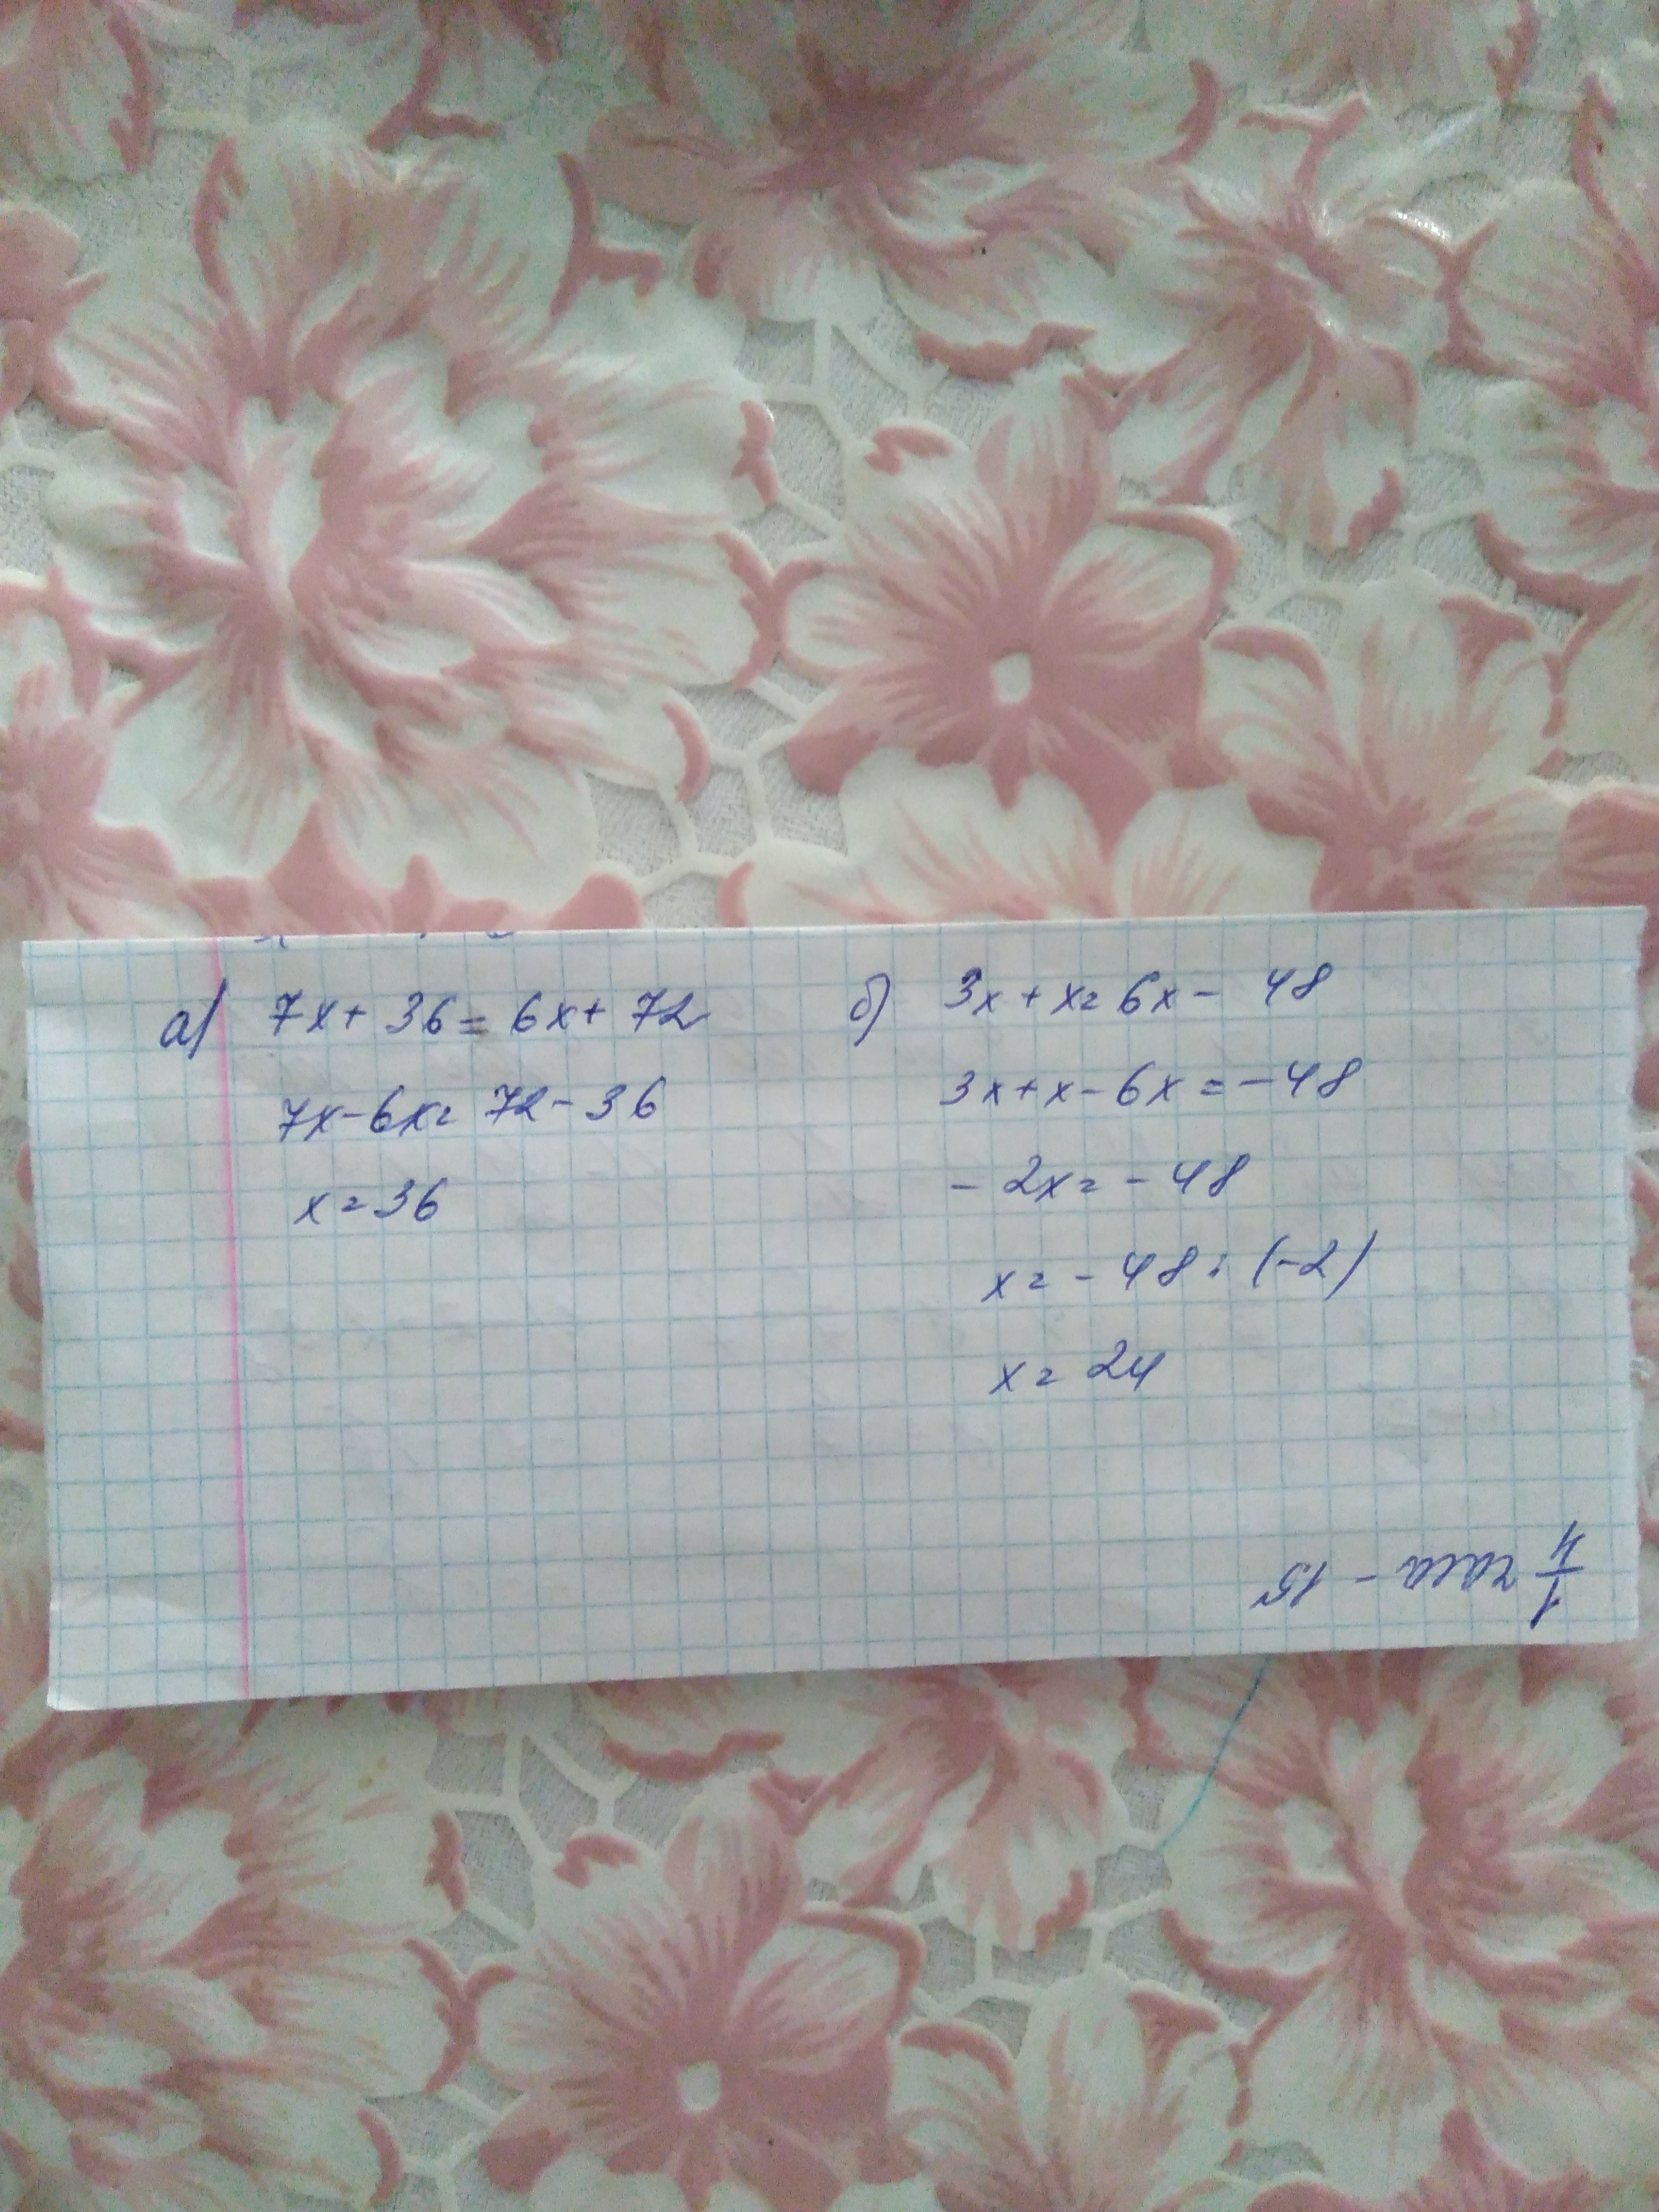 а) 7x + 36 = 6x + 72
7x - 6x = 72 - 36
x = 36
б) 3x + x = 6x - 48
3x + x - 6x = - 48
- 2x = - 48
x = - 48 : (-2)
x = 24
1/4 часа - 15